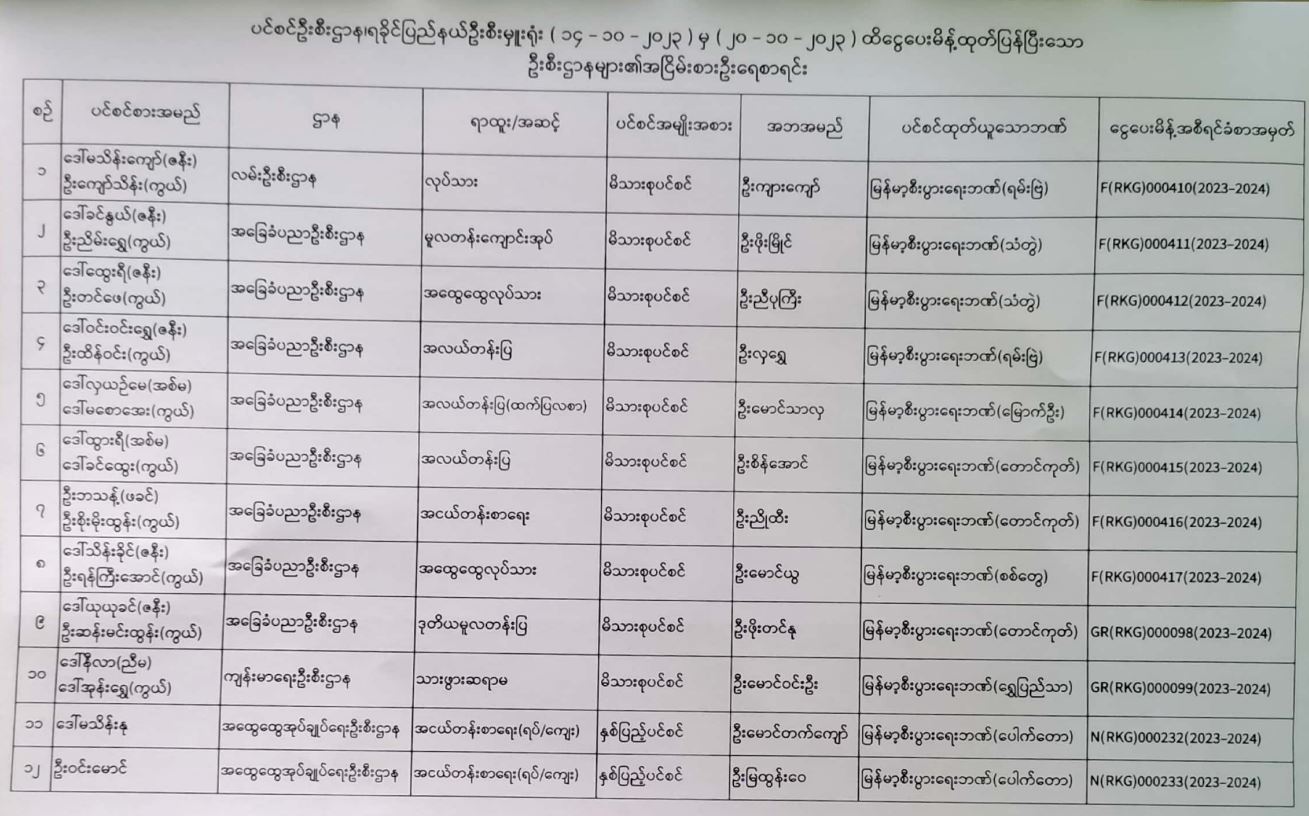 ပင်စင်ဦးစီးဌာန၊ရခိုင်ပြည်နယ်ဦးစီးမှူးရုံး ( ၁၄ - ၁၀ - ၂၀၂၃ ) မှ ( ၂၀ - ၁၀ - ၂၀၂၃ ) ထိငွေပေးမိန့်ထုတ်ပြန်ပြီးသော
ဦးစီးဌာနများ၏အငြိမ်းစားဦးရေစာရင်း
စဉ် ပင်စင်စားအမည် ဌာန ရာထူး/အဆင့် ပင်စင်အမျိုးအစား အဘအမည် ပင်စင်ထုတ်ယူသောဘဏ် ငွေပေးမိန့်အစီရင်ခံစာအမှတ်
၁ ဒေါ်မသိန်းကျော်(ဇနီး)
ဦးကျော်သိန်း(ကွယ်) လမ်းဦးစီးဌာန လုပ်သား မိသားစုပင်စင် ဦးကျားကျော် မြန်မာ့စီးပွားရေးဘဏ်(ရမ်းဗြဲ) F(RKG)000410(2023-2024)
၂ ဒေါ်ခင်နွယ်(ဇနီး)
ဦးညိမ်းရွှေ(ကွယ်) အခြေခံပညာဦးစီးဌာန မူလတန်းကျောင်းအုပ် မိသားစုပင်စင် ဦးဖိုးမြိုင် မြန်မာ့စီးပွားရေးဘဏ်(သံတွဲ) F(RKG)000411(2023-2024)
၃ ဒေါ်ထွေးရီ(ဇနီး)
ဦးတင်ဖေ(ကွယ်) အခြေခံပညာဦးစီးဌာန အထွေထွေလုပ်သား မိသားစုပင်စင် ဦးညီပုကြီး မြန်မာ့စီးပွားရေးဘဏ်(သံတွဲ) F(RKG)000412(2023-2024)
၄ ဒေါ်ဝင်းဝင်းရွှေ(ဇနီး)
ဦးထိန်ဝင်း(ကွယ်) အခြေခံပညာဦးစီးဌာန အလယ်တန်းပြ မိသားစုပင်စင် ဦးလှရွှေ မြန်မာ့စီးပွားရေးဘဏ်(ရမ်းဗြဲ) F(RKG)000413(2023-2024)
၅ ဒေါ်လှယဉ်မေ(အစ်မ)
ဒေါ်မစောအေး(ကွယ်) အခြေခံပညာဦးစီးဌာန အလယ်တန်းပြ(ထက်ပြလစာ) မိသားစုပင်စင် ဦးမောင်သာလှ မြန်မာ့စီးပွားရေးဘဏ်(မြောက်ဦး) F(RKG)000414(2023-2024)
၆ ဒေါ်ထွားရီ(အစ်မ)
ဒေါ်ခင်ထွေး(ကွယ်) အခြေခံပညာဦးစီးဌာန အလယ်တန်းပြ မိသားစုပင်စင် ဦးစိန်အောင် မြန်မာ့စီးပွားရေးဘဏ်(တောင်ကုတ်) F(RKG)000415(2023-2024)
၇ ဦးဘသန့်(ဖခင်)
ဦးစိုးမိုးထွန်း(ကွယ်) အခြေခံပညာဦးစီးဌာန အငယ်တန်းစာရေး မိသားစုပင်စင် ဦးညိုထီး မြန်မာ့စီးပွားရေးဘဏ်(တောင်ကုတ်) F(RKG)000416(2023-2024)
၈ ဒေါ်သိန်းခိုင်(ဇနီး)
ဦးရန်ကြီးအောင်(ကွယ်) အခြေခံပညာဦးစီးဌာန အထွေထွေလုပ်သား မိသားစုပင်စင် ဦးမောင်ယွ မြန်မာ့စီးပွားရေးဘဏ်(စစ်တွေ) F(RKG)000417(2023-2024)
၉ ဒေါ်ယုယုခင်(ဇနီး)
ဦးဆန်းမင်းထွန်း(ကွယ်) အခြေခံပညာဦးစီးဌာန ဒုတိယမူလတန်းပြ မိသားစုပင်စင် ဦးဖိုးတင်နု မြန်မာ့စီးပွားရေးဘဏ်(တောင်ကုတ်) GR(RKG)000098(2023-2024)
၁၀ ဒေါ်နီလာ(ညီမ)
ဒေါ်အုန်းရွှေ(ကွယ်) ကျန်းမာရေးဦးစီးဌာန သားဖွားဆရာမ မိသားစုပင်စင် ဦးမောင်ဝင်းဦး မြန်မာ့စီးပွားရေးဘဏ်(ရွှေပြည်သာ) GR(RKG)000099(2023-2024)
၁၁ ဒေါ်မသိန်းနု အထွေထွေအုပ်ချုပ်ရေးဦးစီးဌာန အငယ်တန်းစာရေး(ရပ်/ကျေး) နှစ်ပြည့်ပင်စင် ဦးမောင်တက်ကျော် မြန်မာ့စီးပွားရေးဘဏ်(ပေါက်တော) N(RKG)000232(2023-2024)
၁၂ ဦးဝင်းမောင် အထွေထွေအုပ်ချုပ်ရေးဦးစီးဌာန အငယ်တန်းစာရေး(ရပ်/ကျေး) နှစ်ပြည့်ပင်စင် ဦးမြထွန်းဝေ မြန်မာ့စီးပွားရေးဘဏ်(ပေါက်တော) N(RKG)000233(2023-2024)